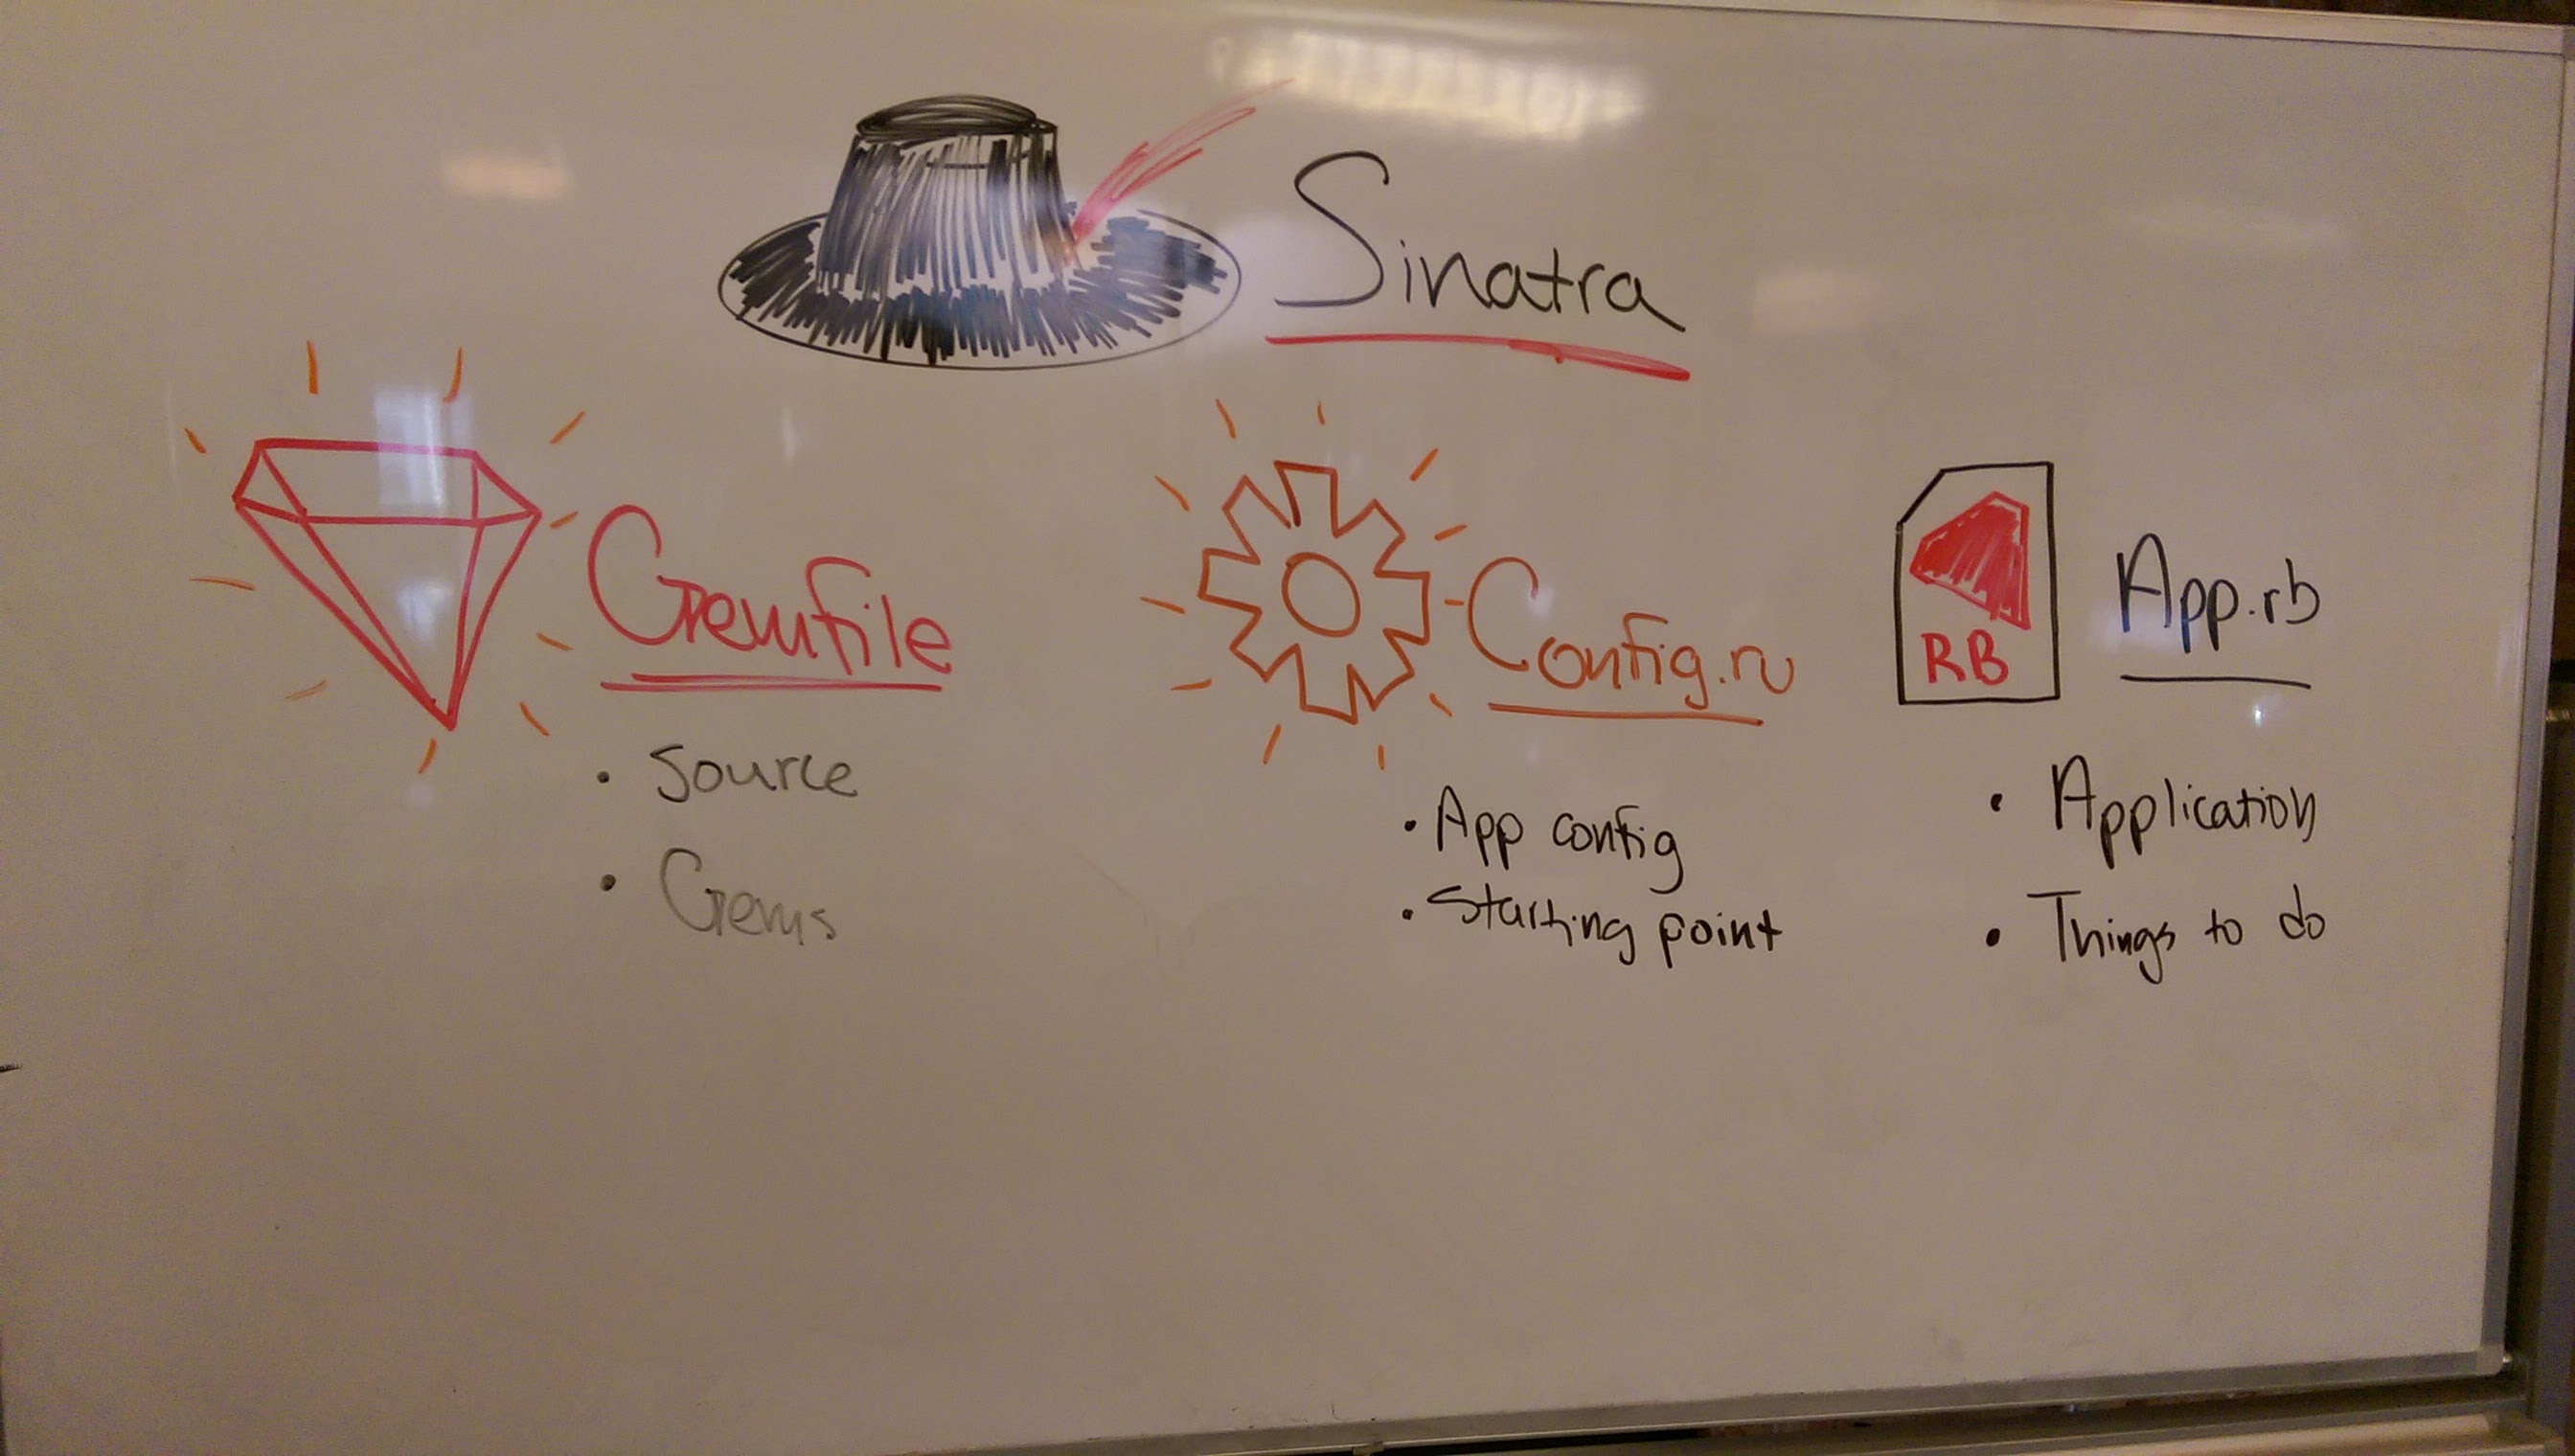 Sinatra
Gemfile
• Source
• Gems
Config.ru
• App config
• Starting point
RB
App.rb
• Application
• Things to do